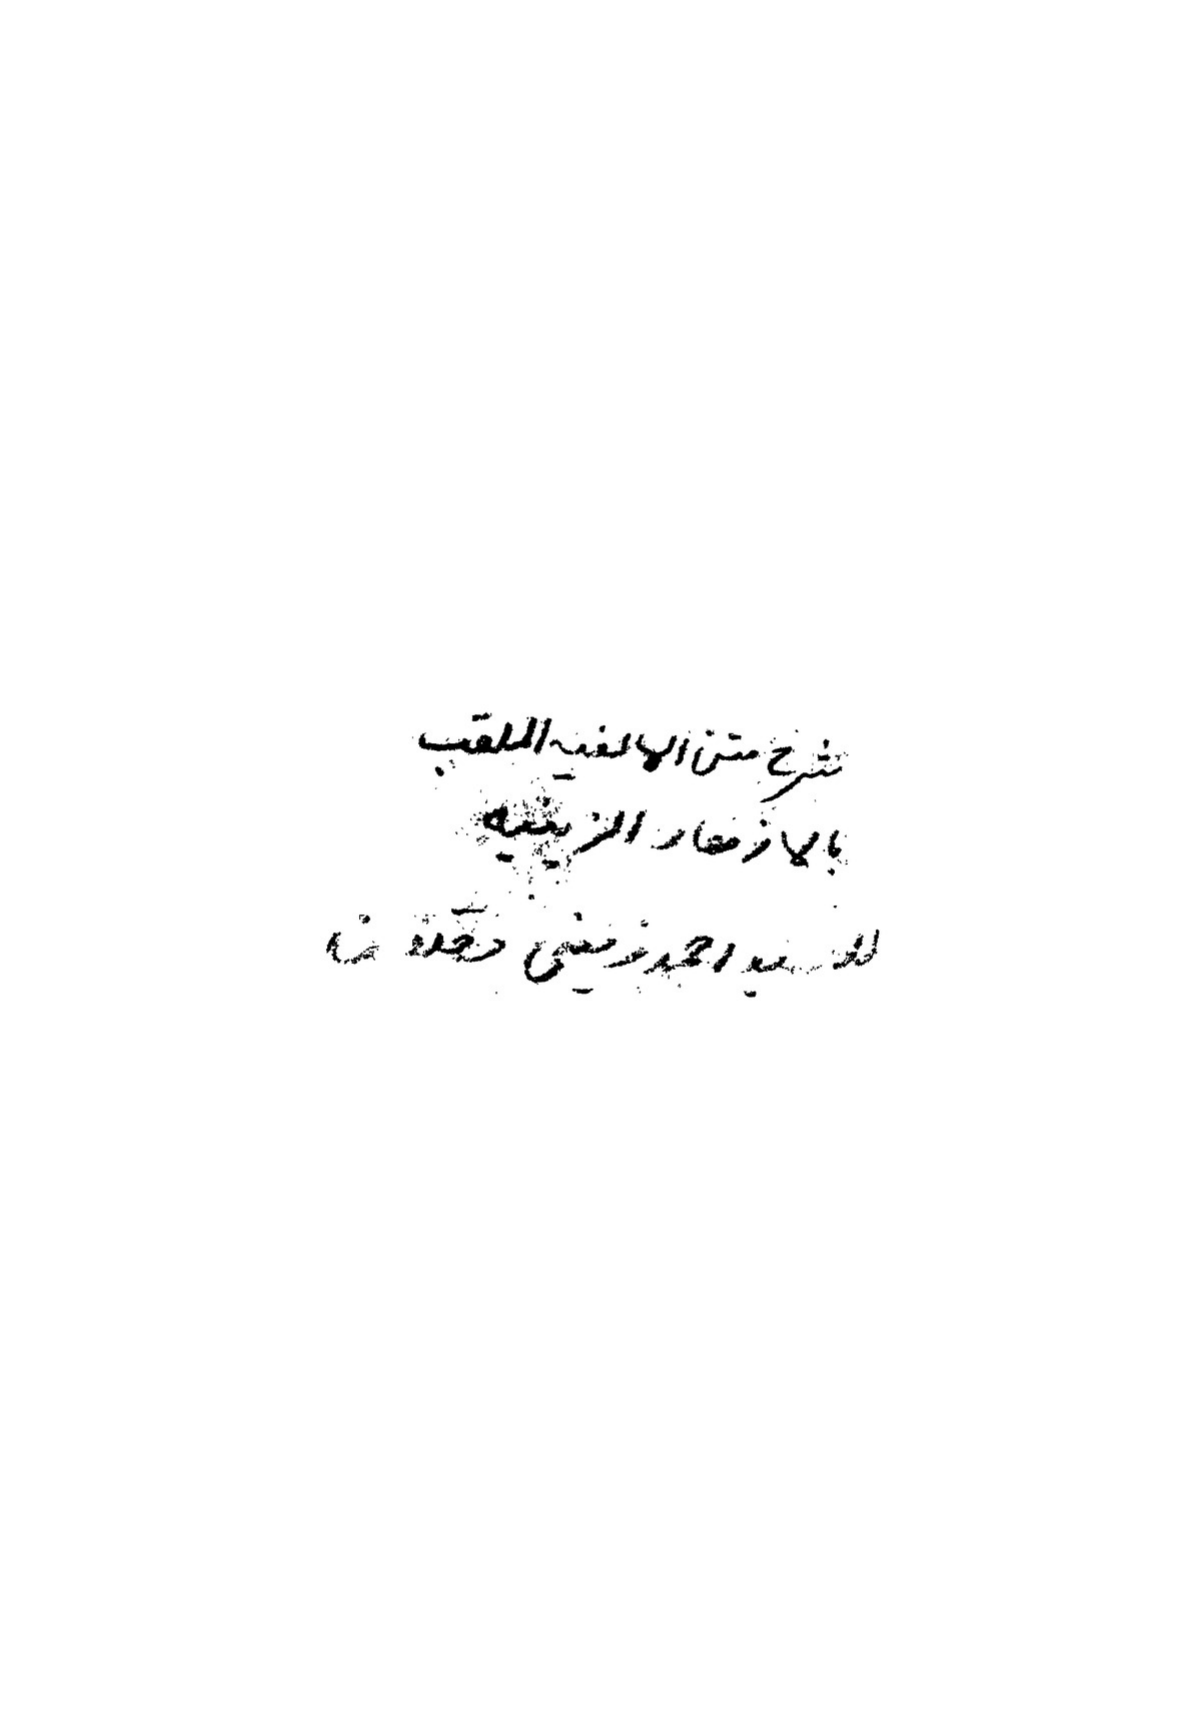 شرح متن الالفيه الملقب
بالازهار الزينيه
للسيد احمد زيني دحلان